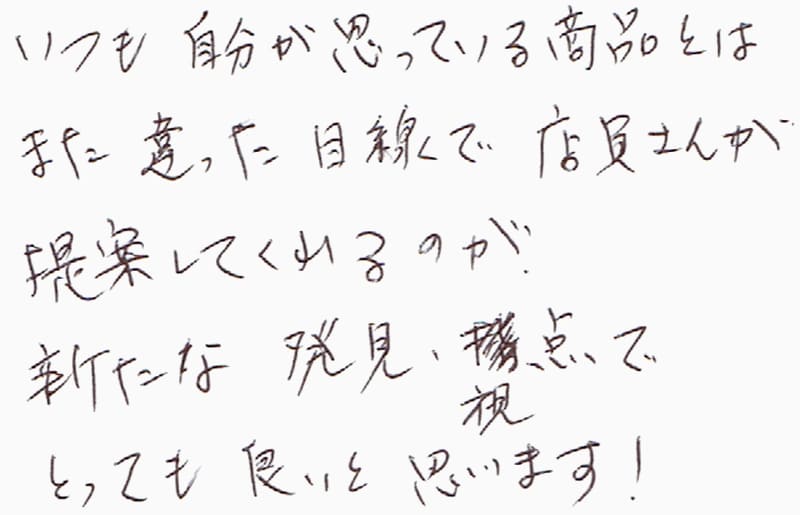 いつも 自分が思っている商品とは
また違った目線で 店員さんが
提案してくれるのが
新たな 発見、視点で
とっても良いと思います!